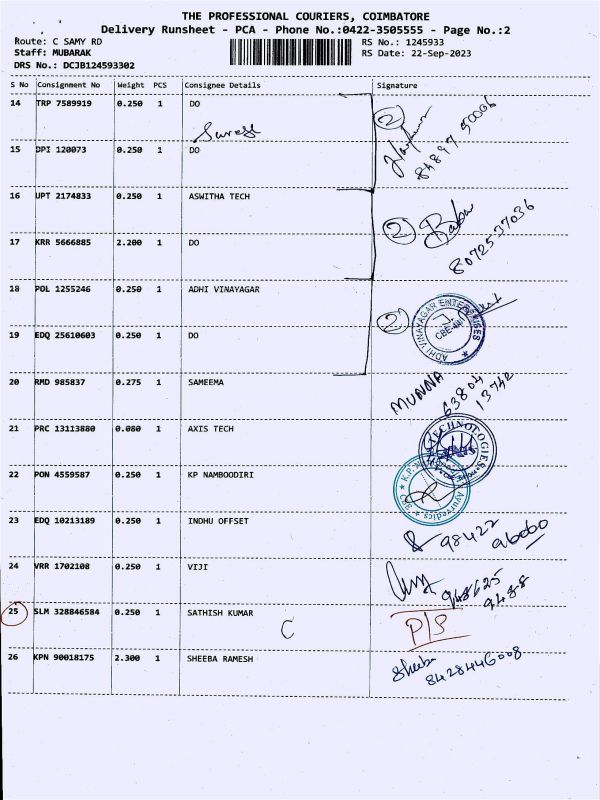 THE PROFESSIONAL COURIERS, COIMBATORE
Delivery Runsheet - PCA - Phone No.:0422-3505555 - Page No.:2
Route: C SAMY RD RS No.: 1245933
Staff: MUBARAK RS Date: 22-Sep-2023
DRS No.: DCJB124593302
S No Consignment No Weight PCS Consignee Details Signature
14 TRP 7589919 0.250 1 DO
Suresh
2
15 DPI 120073 0.250 1 DO
16 UPT 2174833 0.250 1 ASWITHA TECH
2 Babu
8072537036
17 KRR 5666885 2.200 1 DO
18 POL 1255246 0.250 1 ADHI VINAYAGAR
2
ADHI VINAYAGAR ENTERPRISES
19 EDQ 25610603 0.250 1 DO
20 RMD 985837 0.275 1 SAMEEMA
MUNNA
63804
13742
21 PRC 13113880 0.080 1 AXIS TECH
TECHNOLOGIES
22 PON 4559587 0.250 1 KP NAMBOODIRI
Ayurvedics
23 EDQ 10213189 0.250 1 INDHU OFFSET
98422
24 VRR 1702108 0.250 1 VIJI
948625
9488
25 SLM 328846584 0.250 1 SATHISH KUMAR
C
P/S
26 KPN 90018175 2.300 1 SHEEBA RAMESH
Sheeba
8428446008